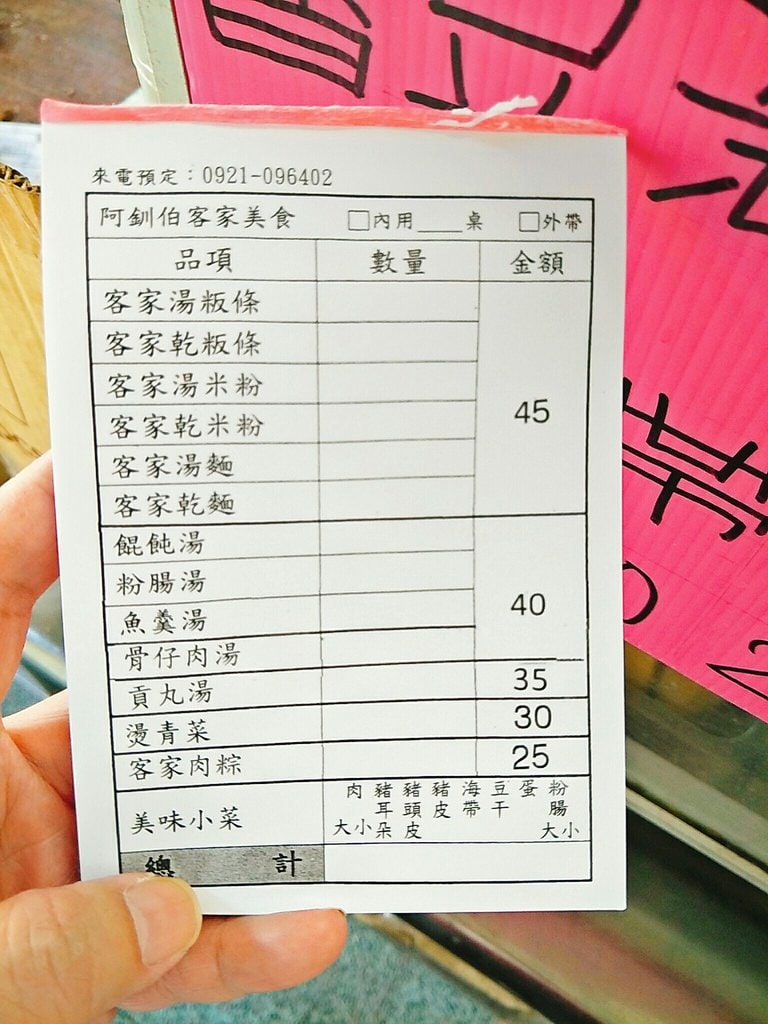 來電預定：0921-096402
阿釧伯客家美食 □內用____桌 □外帶
品項 數量 金額
客家湯粄條
客家乾粄條
客家湯米粉
客家乾米粉
客家湯麵
客家乾麵
45
餛飩湯
粉腸湯
魚羹湯
骨仔肉湯
40
貢丸湯 35
燙青菜 30
客家肉粽 25
美味小菜 肉大小 豬耳朵 豬頭皮 豬皮 海帶 豆干 蛋 粉腸大小
總計
帶
0 2